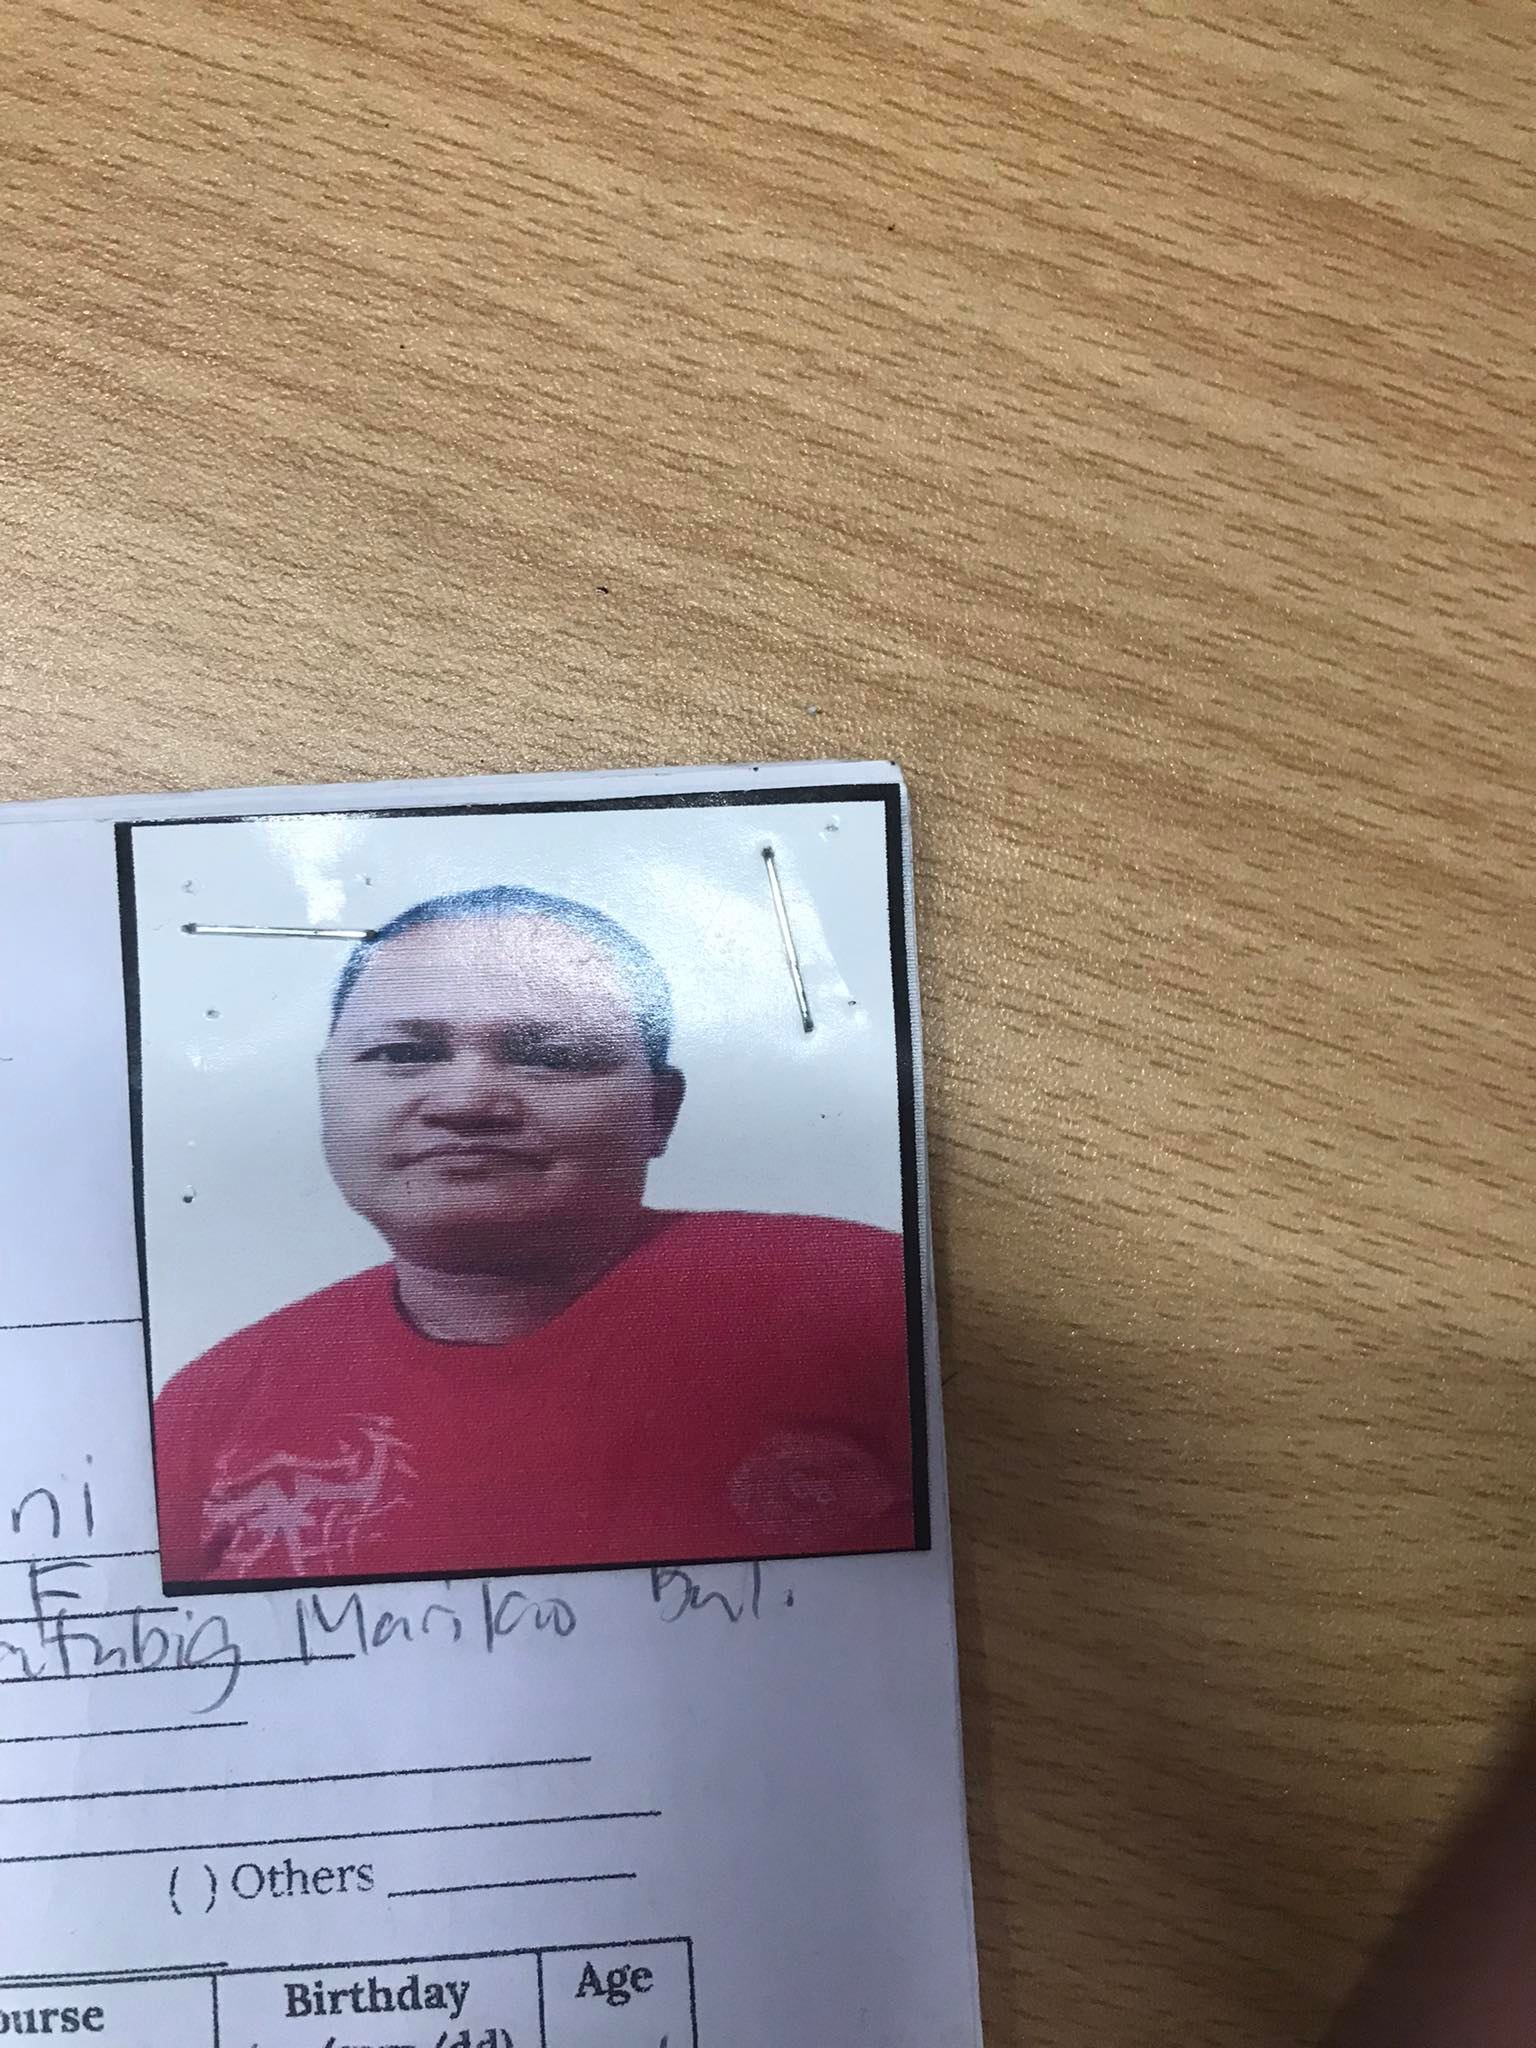 ni
F
atubig Marilao Bul.
( ) Others
ourse Birthday Age